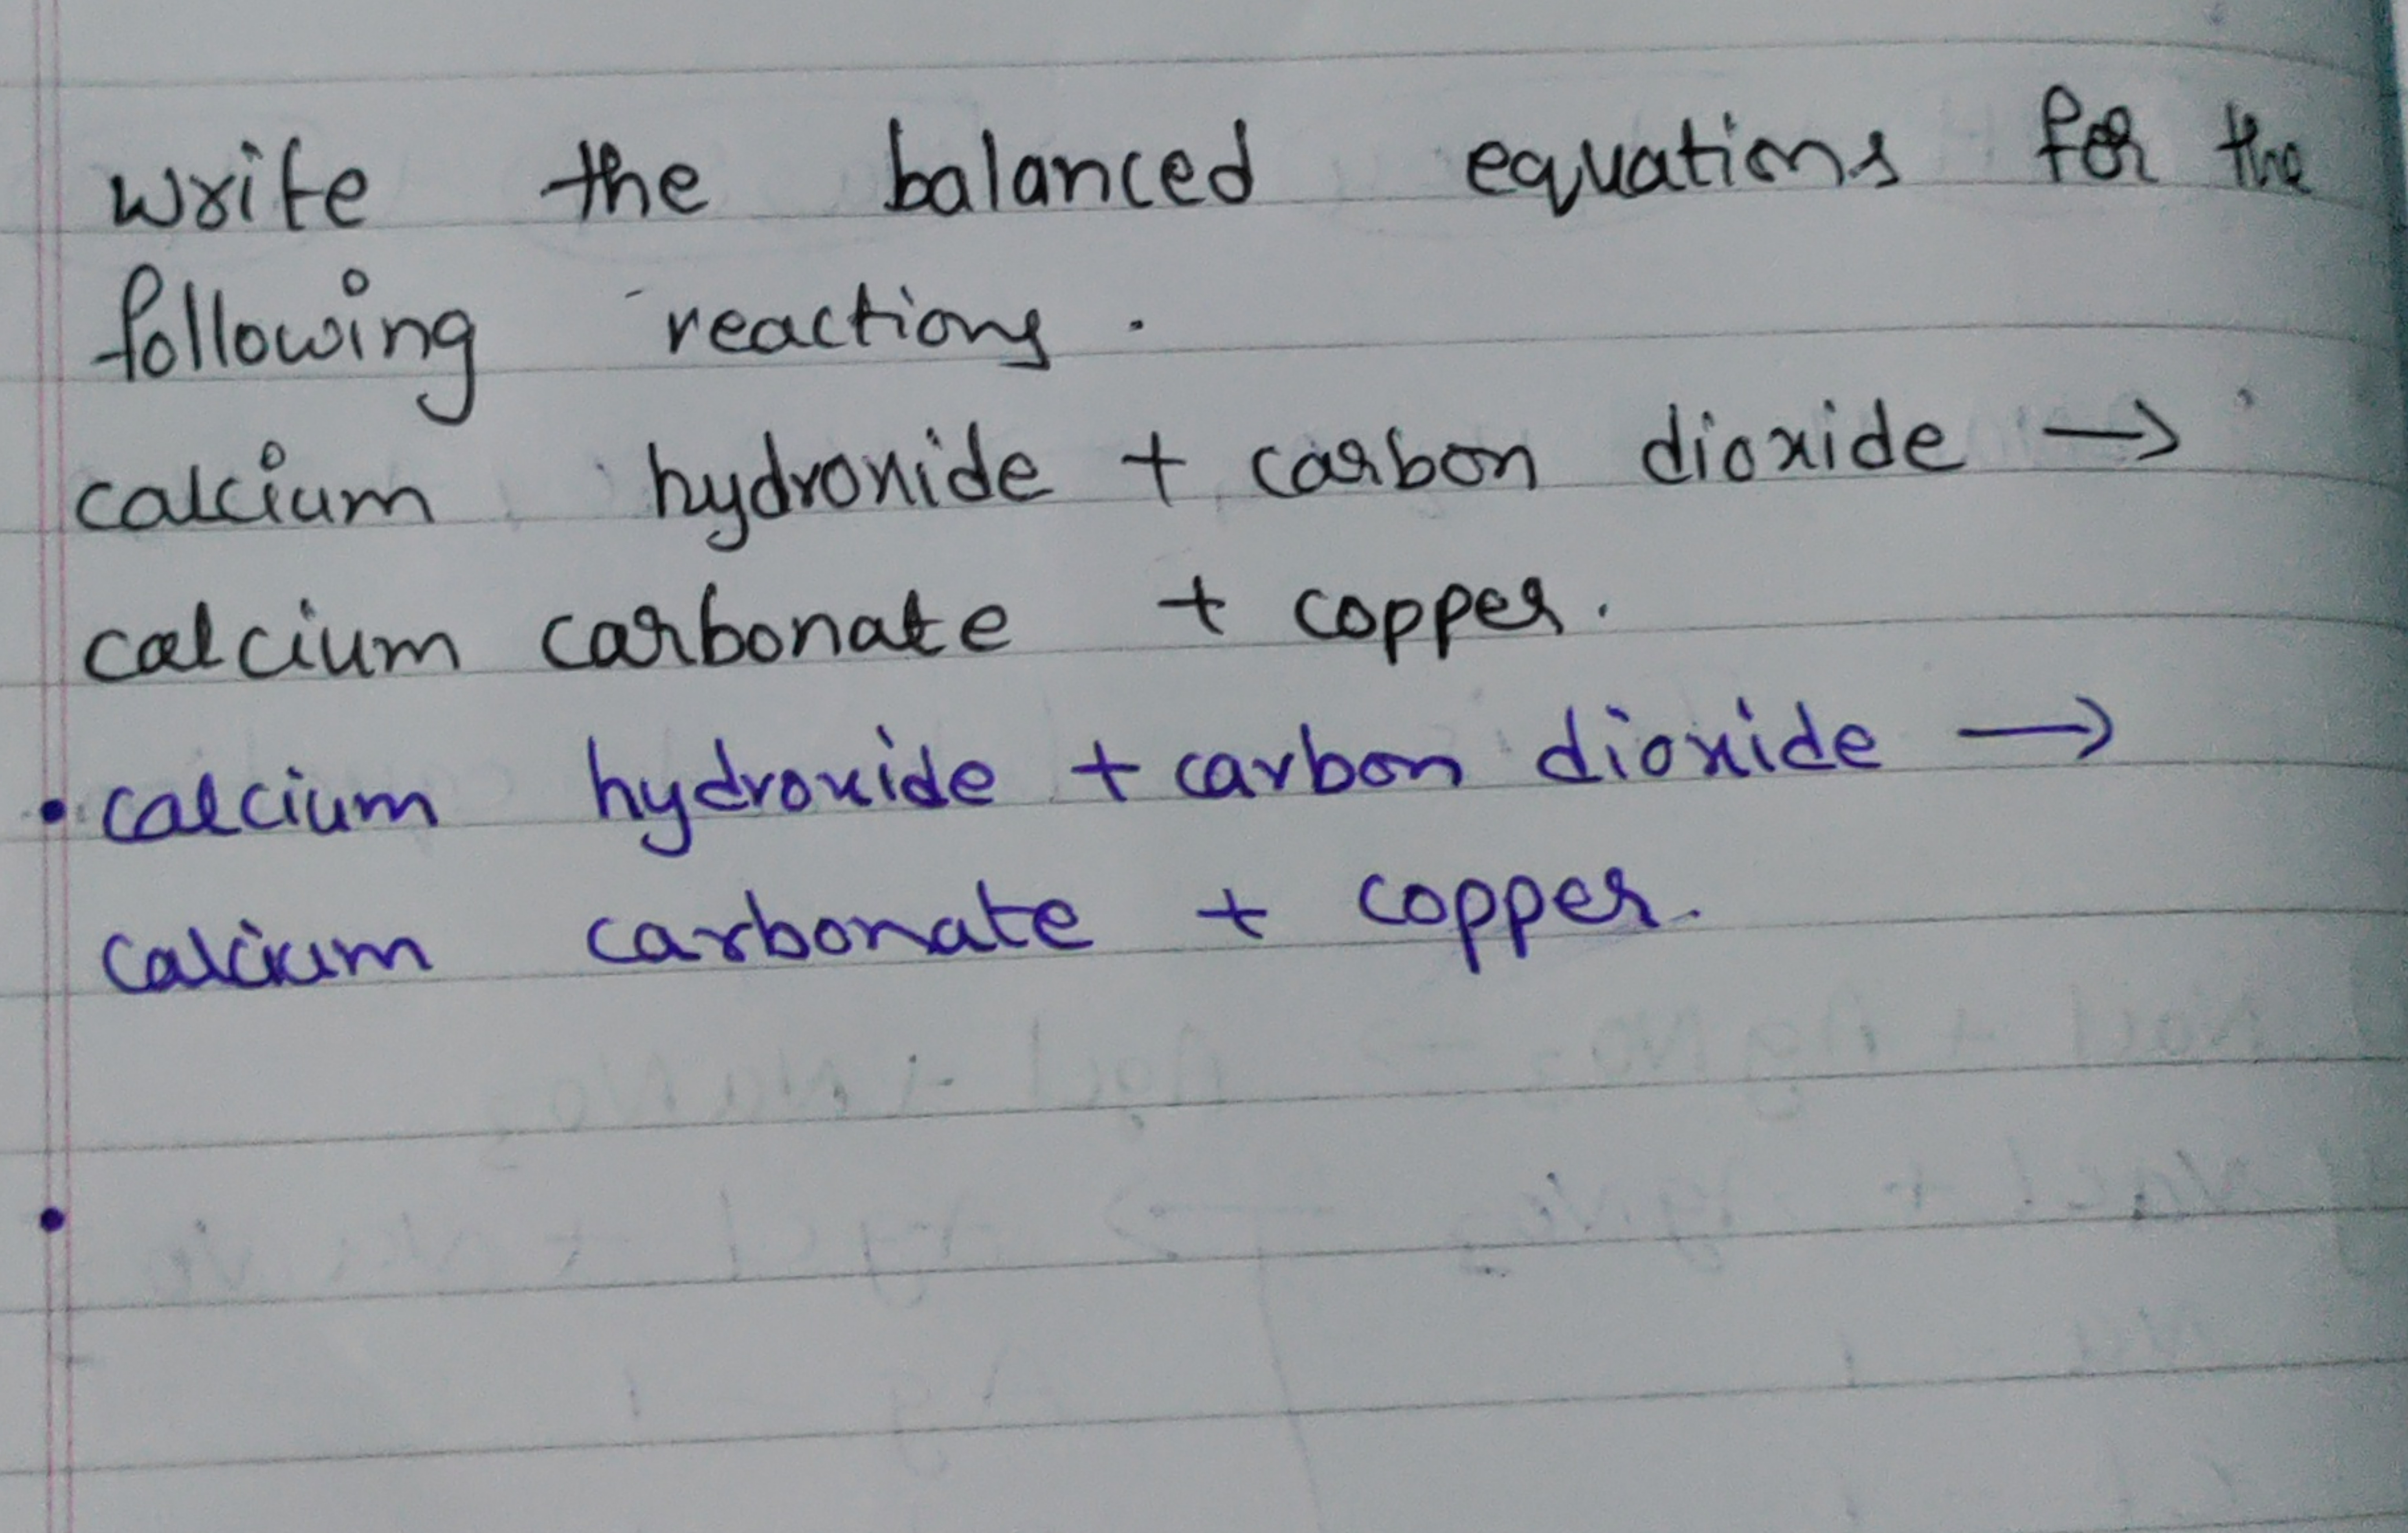 write the balanced equations for the
following reactions.
calcium hydroxide + carbon dioxide →
calcium carbonate + copper.
• calcium hydroxide + carbon dioxide →
calcium carbonate + copper.
•